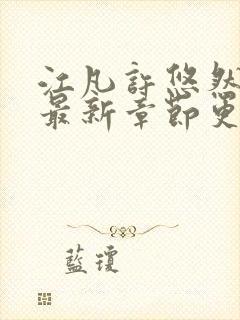 江凡許悠然
最新章節更
藍瓊